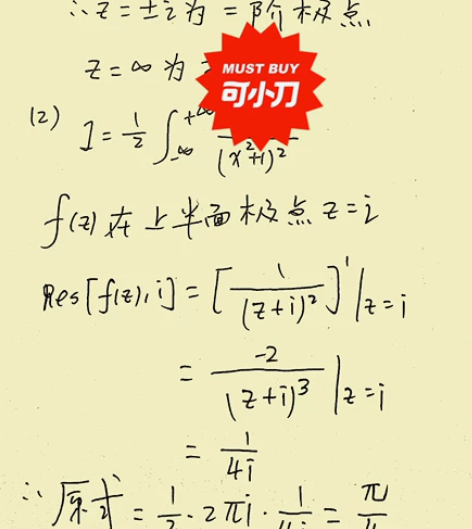 ∴ z = ±i 为二阶极点
z = ∞ 为
MUST BUY
可小刀
(2) I = 1/2 ∫_{-∞}^{+∞} /(x²+1)²
f(z) 在上半面极点 z = i
Res[f(z), i] = [1/(z+i)²]'|_{z=i}
= -2/(z+i)³|_{z=i}
= 1/4i
∴ 原式 = 1/2 · 2πi · 1/4i = π/4